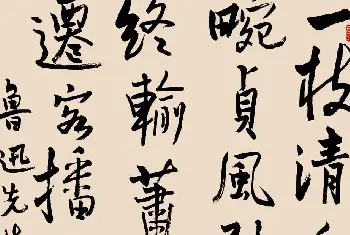 一枝清
畹貞風
終輸蕭
遷客播
魯迅先